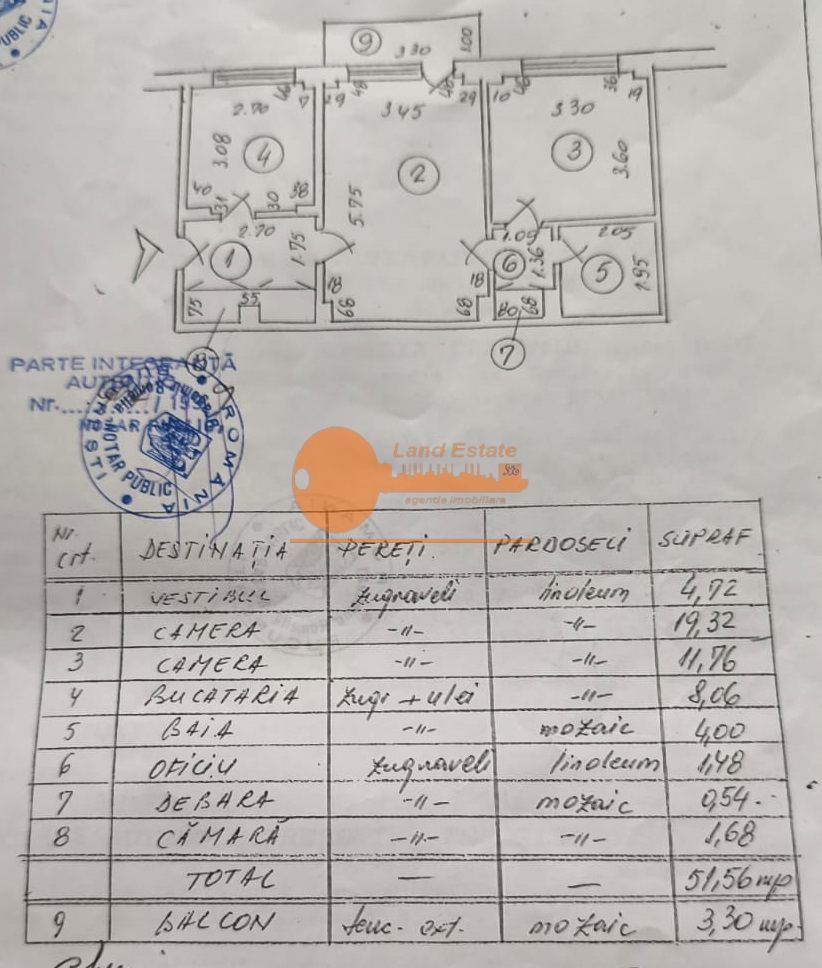 9
3.30
1.00
46
7
29
48
48
29
10
46
36
19
2.70
3.45
3.30
3.08
4
2
3
3.60
40
31
30
38
5.75
2.70
1.75
1
1.09
2.05
6
1.36
5
1.95
18
18
75
55
68
68
80
68
8
7
PARTE INTEGRANTĂ
NOTAR PUBLIC
ROMANIA
Land Estate
agentie imobiliara
Nr. crt. DESTINAȚIA PEREȚI. PARDOSELI SUPRAF
1 VESTIBUL zugraveli linoleum 4,72
2 CAMERA -"- -"- 19,32
3 CAMERA -"- -"- 11,76
4 BUCATARIA zugr + ulei -"- 8,06
5 BAIA -"- mozaic 4,00
6 OFICIU zugraveli linoleum 1,48
7 DEBARA -"- mozaic 0,54.-
8 CĂMARĂ -"- -"- 1,68
TOTAL — — 51,56 mp
9 BALCON tenc. ext. mozaic 3,30 mp.